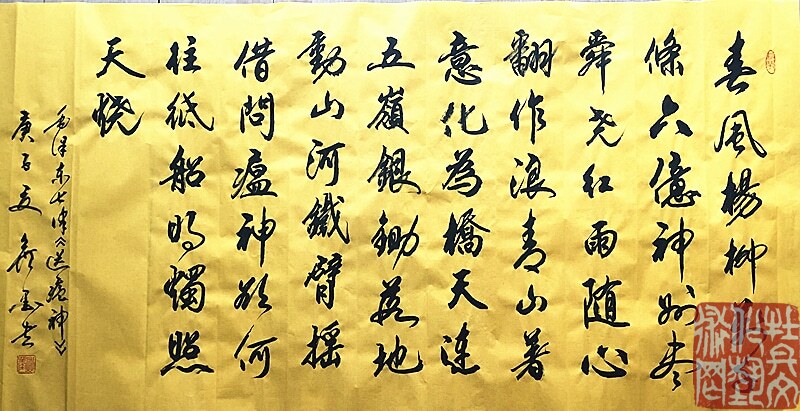 春風楊柳
條六億神州尽
舜尧红雨随心
翻作浪青山着
意化為橋天连
五嶺銀鋤落地
動山河鐵臂摇
借問瘟神欲何
往纸船明燭照
天烧
毛泽东七律《送瘟神》
庚子夏